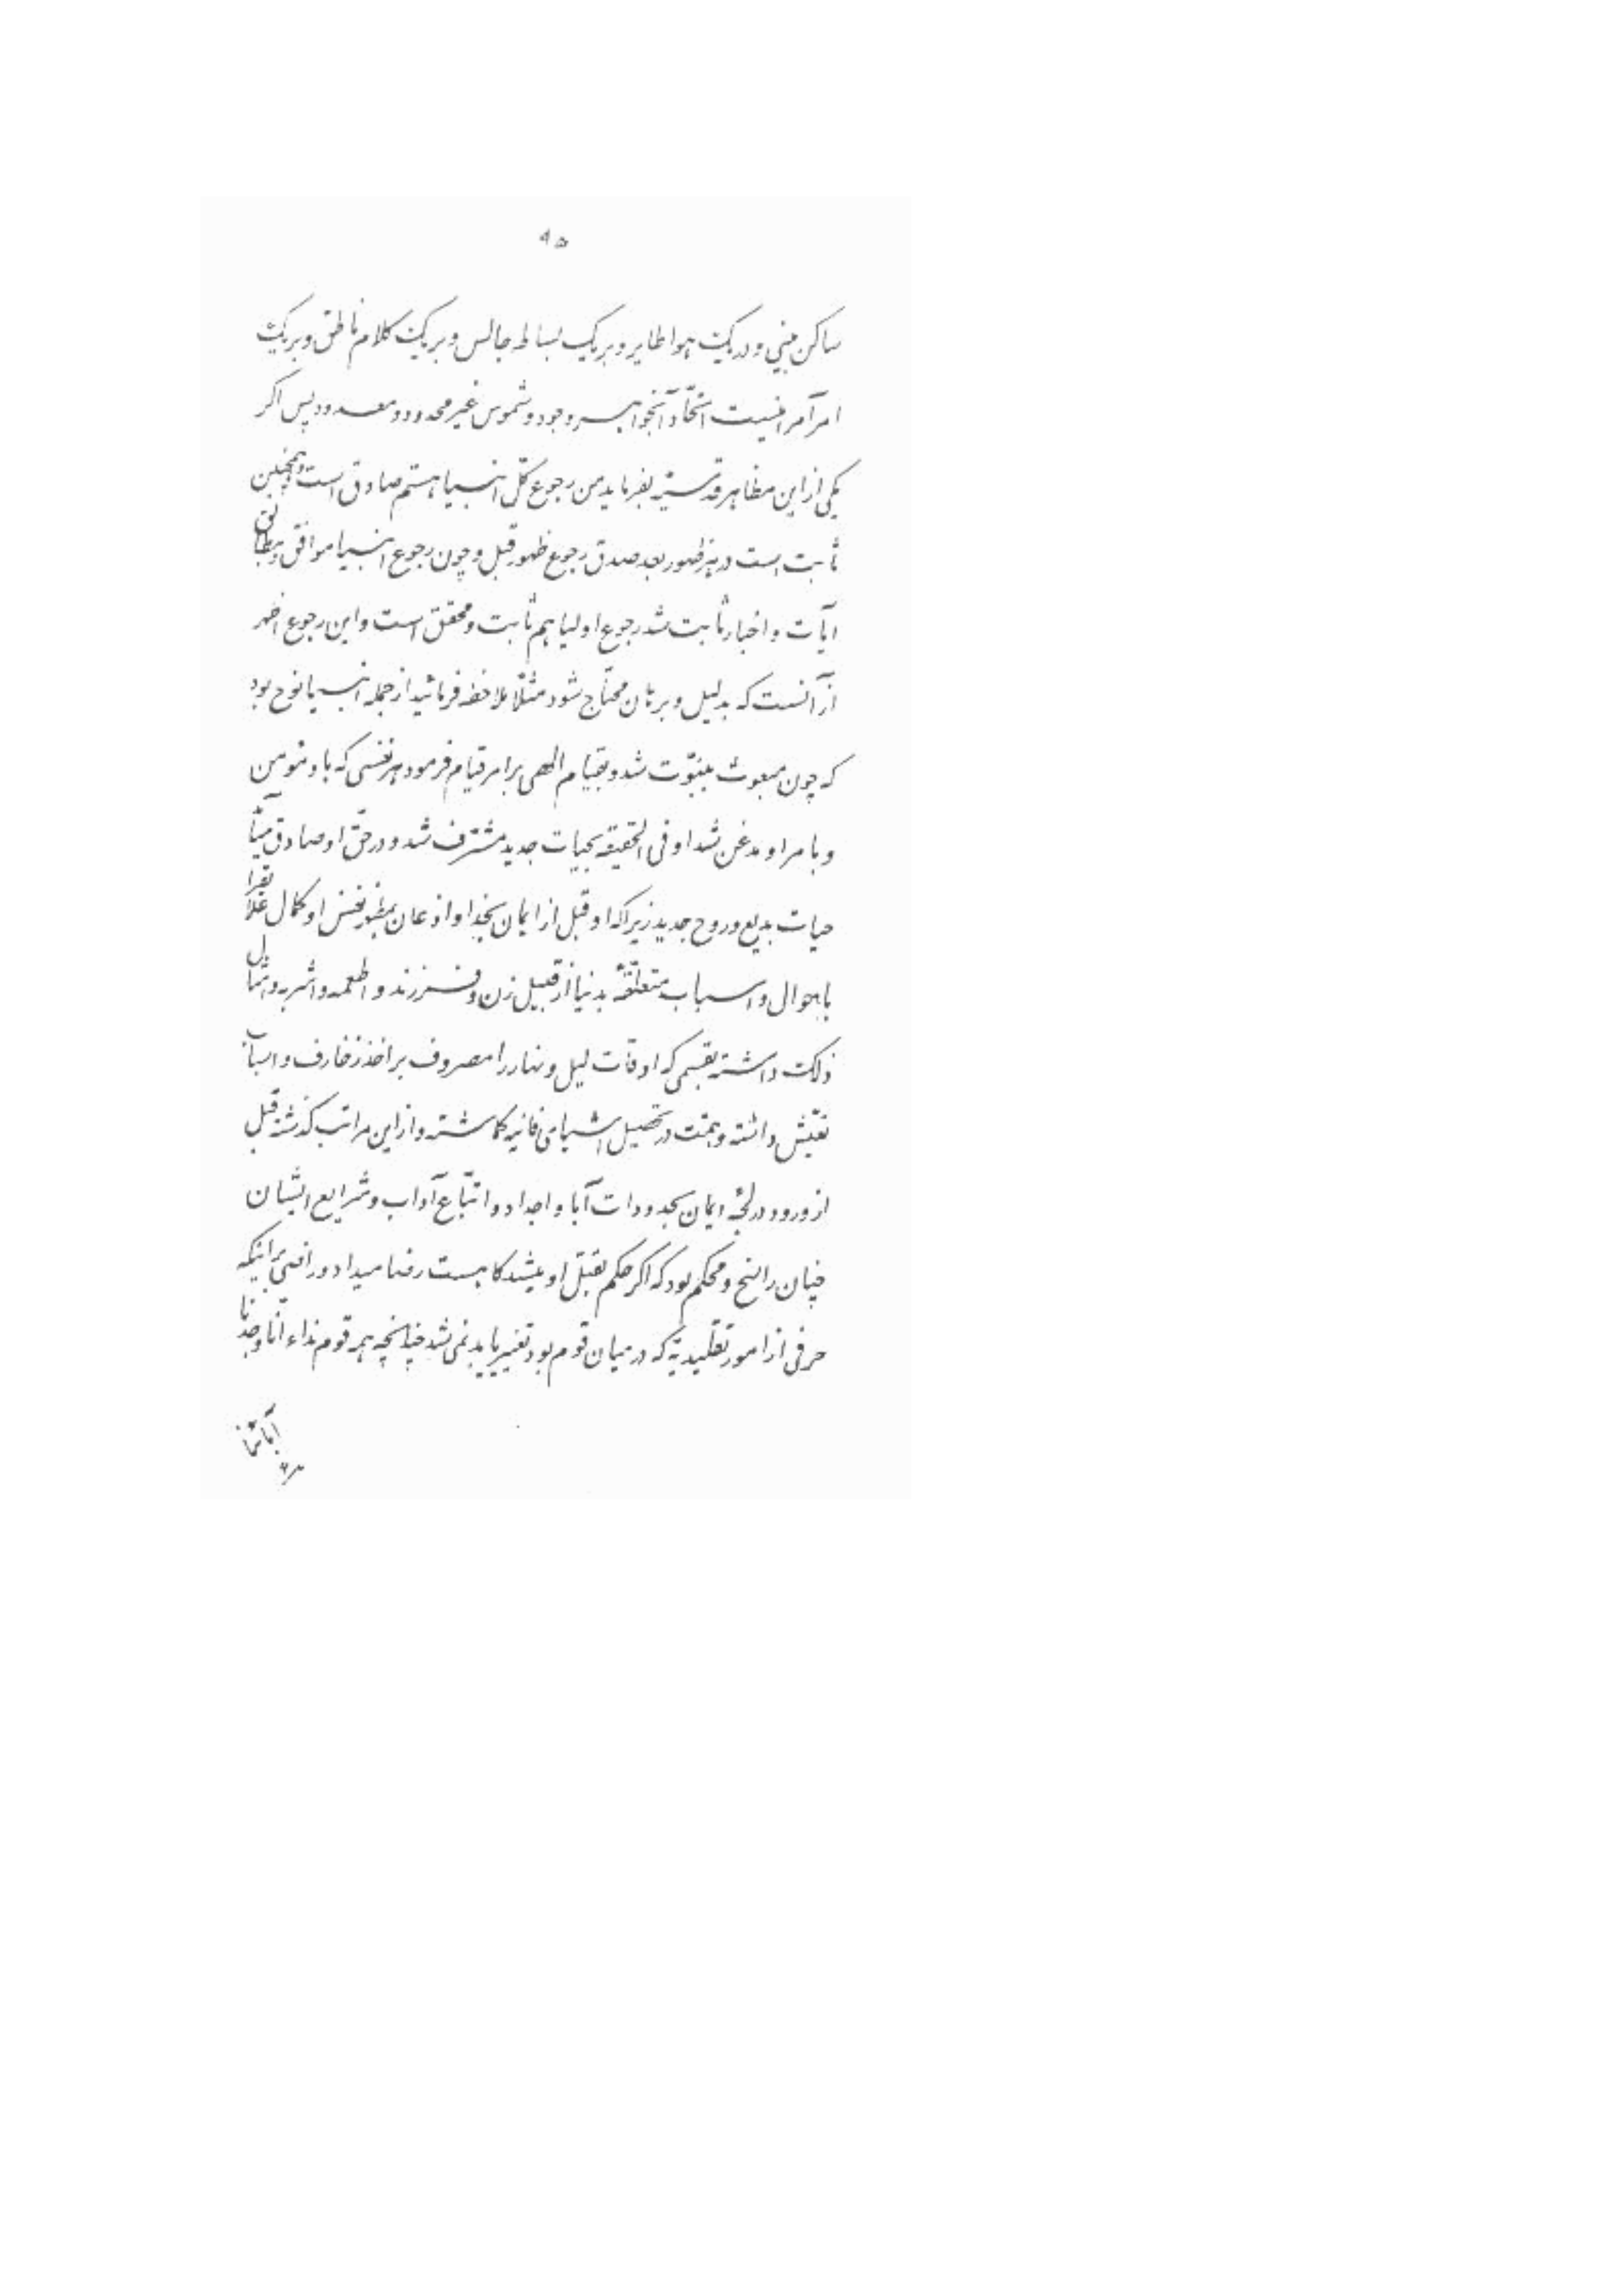 ٩٥
ساکن بینی و در یک هوا طایر و بر یک بساط جالس و بر یک کلام ناطق و بر یک
امر آمر اینست اتّحاد آنجواهر وجود و شموس غیر محدود و معدود پس اگر
یکی از این مظاهر قدسیّه بفرماید من رجوع کلّ انبیا هستم صادق است و همچنین
ثابت است در هر ظهور بعد صدق رجوع ظهور قبل و چون رجوع انبیا موافق و مطابق
آیات و اخبار ثابت شد رجوع اولیا هم ثابت و محقق است و این رجوع اظهر
از آنست که بدلیل و برهان محتاج شود مثلًا ملاحظه فرمائید از جمله انبیا نوح بود
که چون مبعوث بنبوّت شد و بقیام الهی بر امر قیام فرمود هر نفسی که باو مؤمن
و بامر او مذعن شد او فی الحقیقه بحیات جدید مشرّف شد و در حقّ او صادق میآید
حیات بدیع و روح جدید زیرا که او قبل از ایمان بخدا و اذعان بمظهر نفس او کمال علاقه را
باموال و اسباب متعلّقهٔ بدنیا از قبیل زن و فرزند و اطعمه و اشربه و امثال
ذلک داشته بقسمی که اوقات لیل و نهار را مصروف بر اخذ زخارف و اسباب
تعیّش داشته و همّت در تحصیل اشیای فانیه گماشته و از این مراتب گذشته قبل
از ورود در لجّهٔ ایمان بحدودات آبا و اجداد و اتّباع آداب و شرایع ایشان
چنان راسخ و محکم بود که اگر حکم بقتل او میشد گاهست رضا میداد و راضی بر اینکه
حرفی از امور تقلیدیّه که در میان قوم بود تغییر یابد نمی‌شد چنانچه همه قوم نداء انّا وجدنا
آبائنا